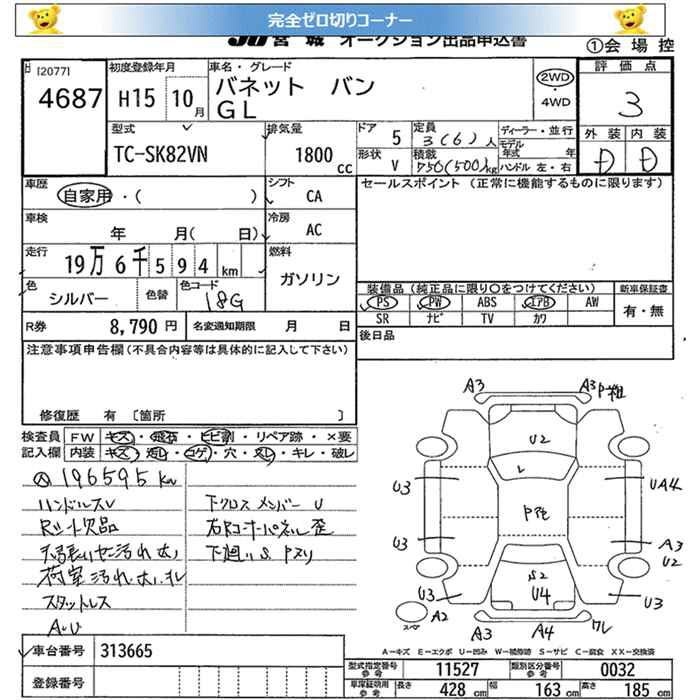 完全ゼロ切りコーナー
JU宮城 オークション出品申込書
①会場控
[2077]
4687
初度登録年月
H15 10月
車名・グレード
バネット バン
GL
2WD
・4WD
評価点
3
外装 内装
D D
型式
TC-SK82VN
排気量
1800cc
ドア 5
形状 V
定員 3(6)人
積載 750(500)kg
ディーラー・並行
モデル年式 年
ハンドル 左・右
車歴
自家用・( )
シフト
CA
セールスポイント(正常に機能するものに限ります)
車検
年 月( 日)
冷房
AC
走行
19万6千594km
燃料
ガソリン
色
シルバー
色替
色コード
18G
装備品(純正品に限り○をつけてください)
PS PW ABS エアB AW
SR ナビ TV カワ
新車保証書
有・無
R券 8,790円
名変通知期限 月 日
後日品
注意事項申告欄(不具合内容等は具体的に記入して下さい)
修復歴 有 〔箇所 〕
検査員記入欄
FW キズ・飛石・ヒビ割・リペア跡・×要
内装 キズ・汚レ・コゲ・穴・スレ・キレ・破レ
196595km
ハンドルスレ
下クロスメンバーU
右Rコーナーパネル歪
下廻りS
スタットレス
A3 A3
U2
U3 UA4
U3 A3
U2
S2
U3 U4 U3
A2
スペア
A3 A4 ワレ
A－キズ E－エクボ U－凹み W－補修跡 S－サビ C－腐食 XX－交換済
車台番号 313665
登録番号
型式指定番号 参考 11527
類別区分番号 参考 0032
車庫証明用 参考 長さ 428cm 幅 163cm 高さ 185cm